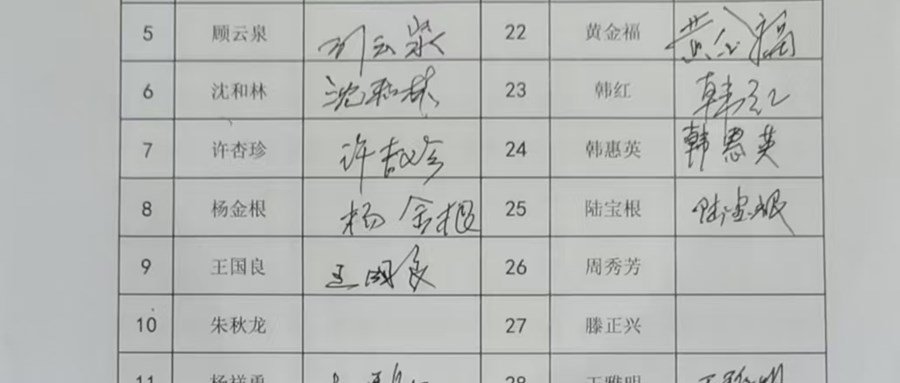 5 顾云泉 顾云泉 22 黄金福 黄金福
6 沈和林 沈和林 23 韩红 韩红
7 许杏珍 许杏珍 24 韩惠英 韩惠英
8 杨金根 杨金根 25 陆宝根 陆宝根
9 王国良 王国良 26 周秀芳
10 朱秋龙 27 滕正兴
11 杨祥勇 28 王雅明